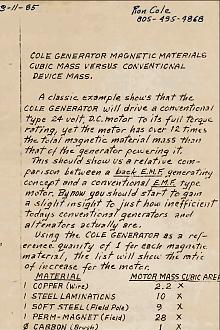 3-11-85
Ron Cole
805-495-1868
COLE GENERATOR MAGNETIC MATERIALS
CUBIC MASS VERSUS CONVENTIONAL
DEVICE MASS.
A classic example shows that the
COLE GENERATOR will drive a conventional
type 24 volt, D.C. motor to its full torque
rating, yet the motor has over 12 times
the total magnetic material mass than
that of the generator powering it.
This should show us a relative com-
parison between a back E.M.F. generating
concept and a conventional E.M.F. type
motor. By now you should start to gain
a slight insight to just how inefficient
todays conventional generators and
alternators actually are.
Using the COLE GENERATOR as a ref-
erence quanity of 1 for each magnetic
material, the list will show the ratio
of increase for the motor.
MATERIAL MOTOR MASS CUBIC AREA
1 COPPER (Wire) 2.2 X
1 STEEL LAMINATIONS 10 X
1 SOFT STEEL (Field Pole) 8 X
1 PERM-MAGNET (Field) 28 X
Ø CARBON (Brush) 1 X